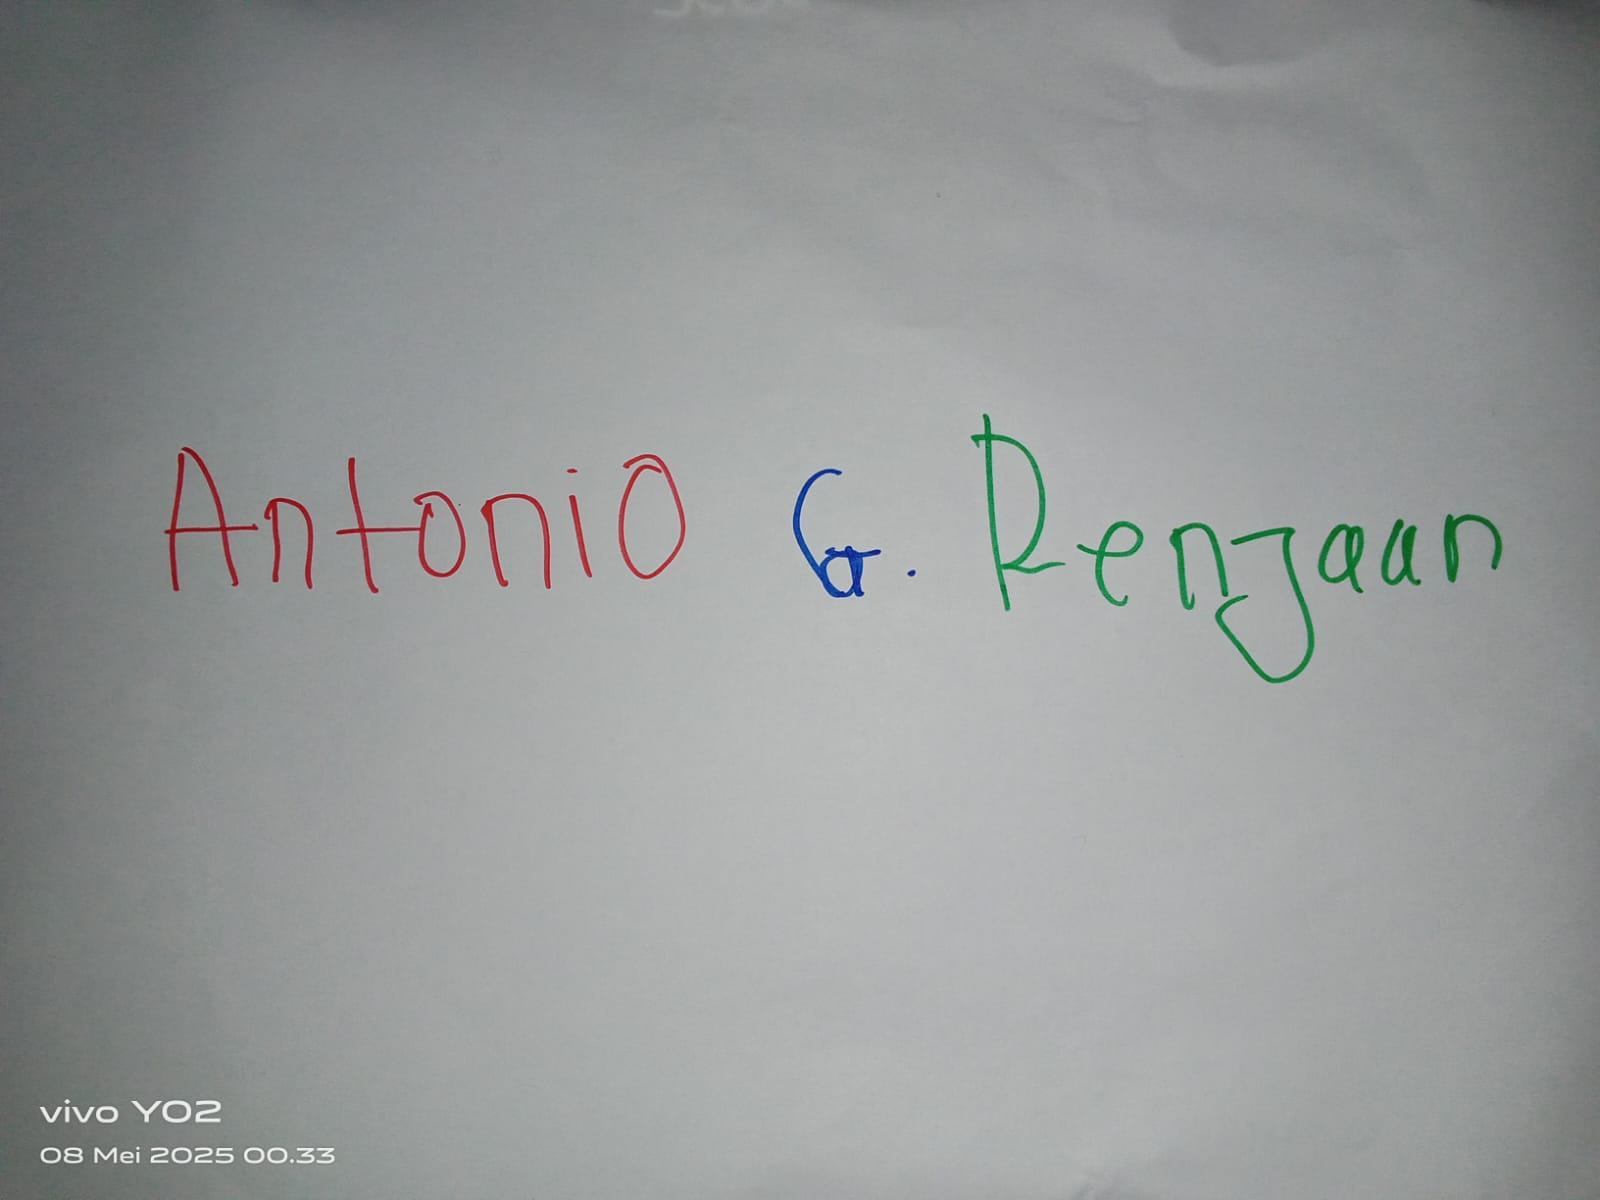 Antonio G. Renjaan
vivo Y02
08 Mei 2025 00.33